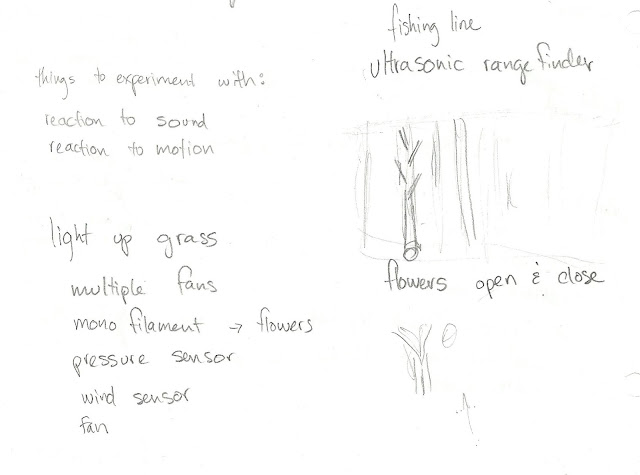 things to experiment with:
reaction to sound
reaction to motion
light up grass
multiple fans
mono filament → flowers
pressure sensor
wind sensor
fan
fishing line
ultrasonic range finder
flowers open & close